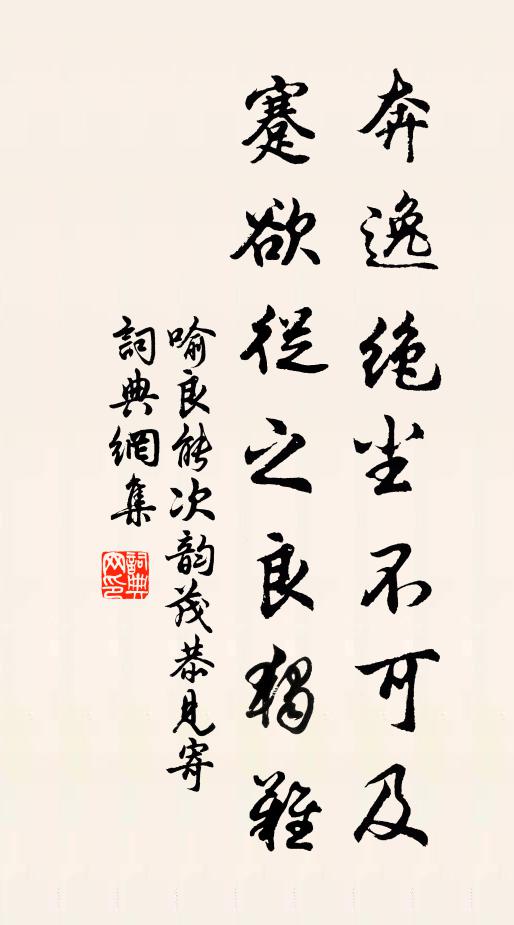 奔逸绝尘不可及
蹇欲從之良獨難
喻良能次韵茂恭見寄
詞典網集
詞典網印